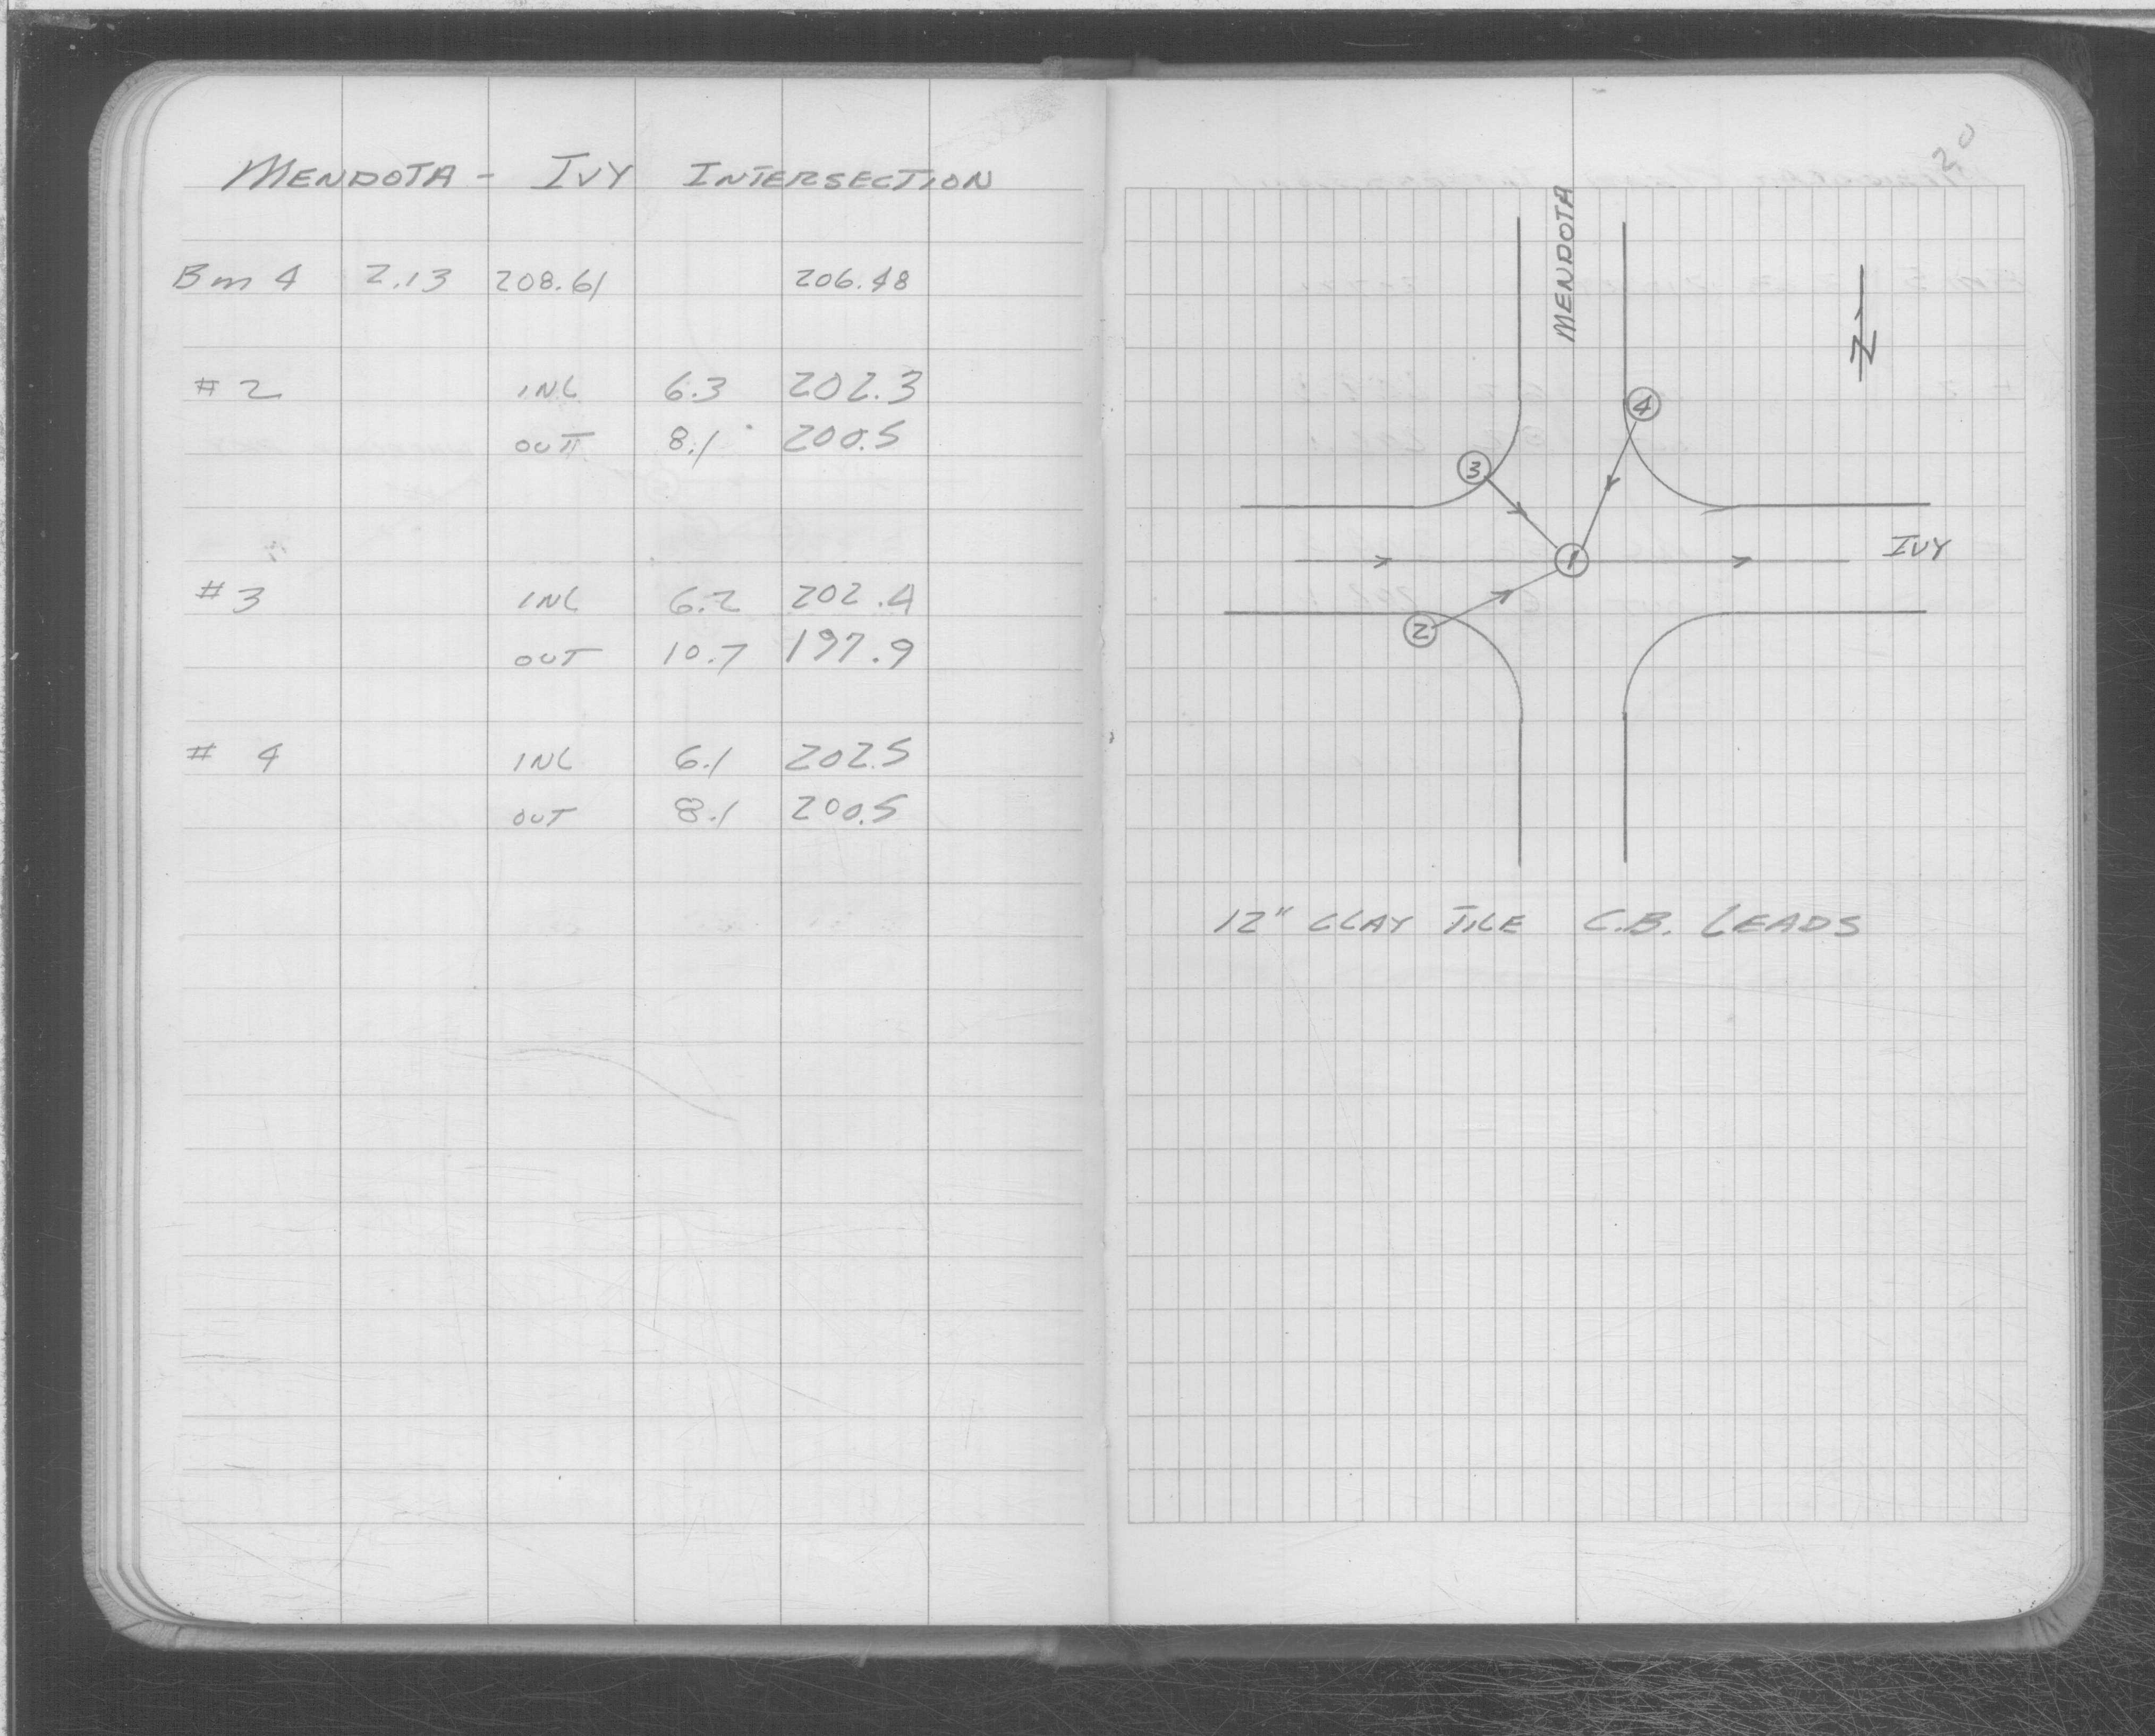 MENDOTA - IVY INTERSECTION
Bm 4 2.13 208.61 206.48
#2 INL 6.3 202.3
OUT 8.1 200.5
#3 INL 6.2 202.4
OUT 10.7 197.9
# 4 INL 6.1 202.5
OUT 8.1 200.5
20
MENDOTA
N
4
3
1
IVY
2
12" CLAY TILE C.B. LEADS